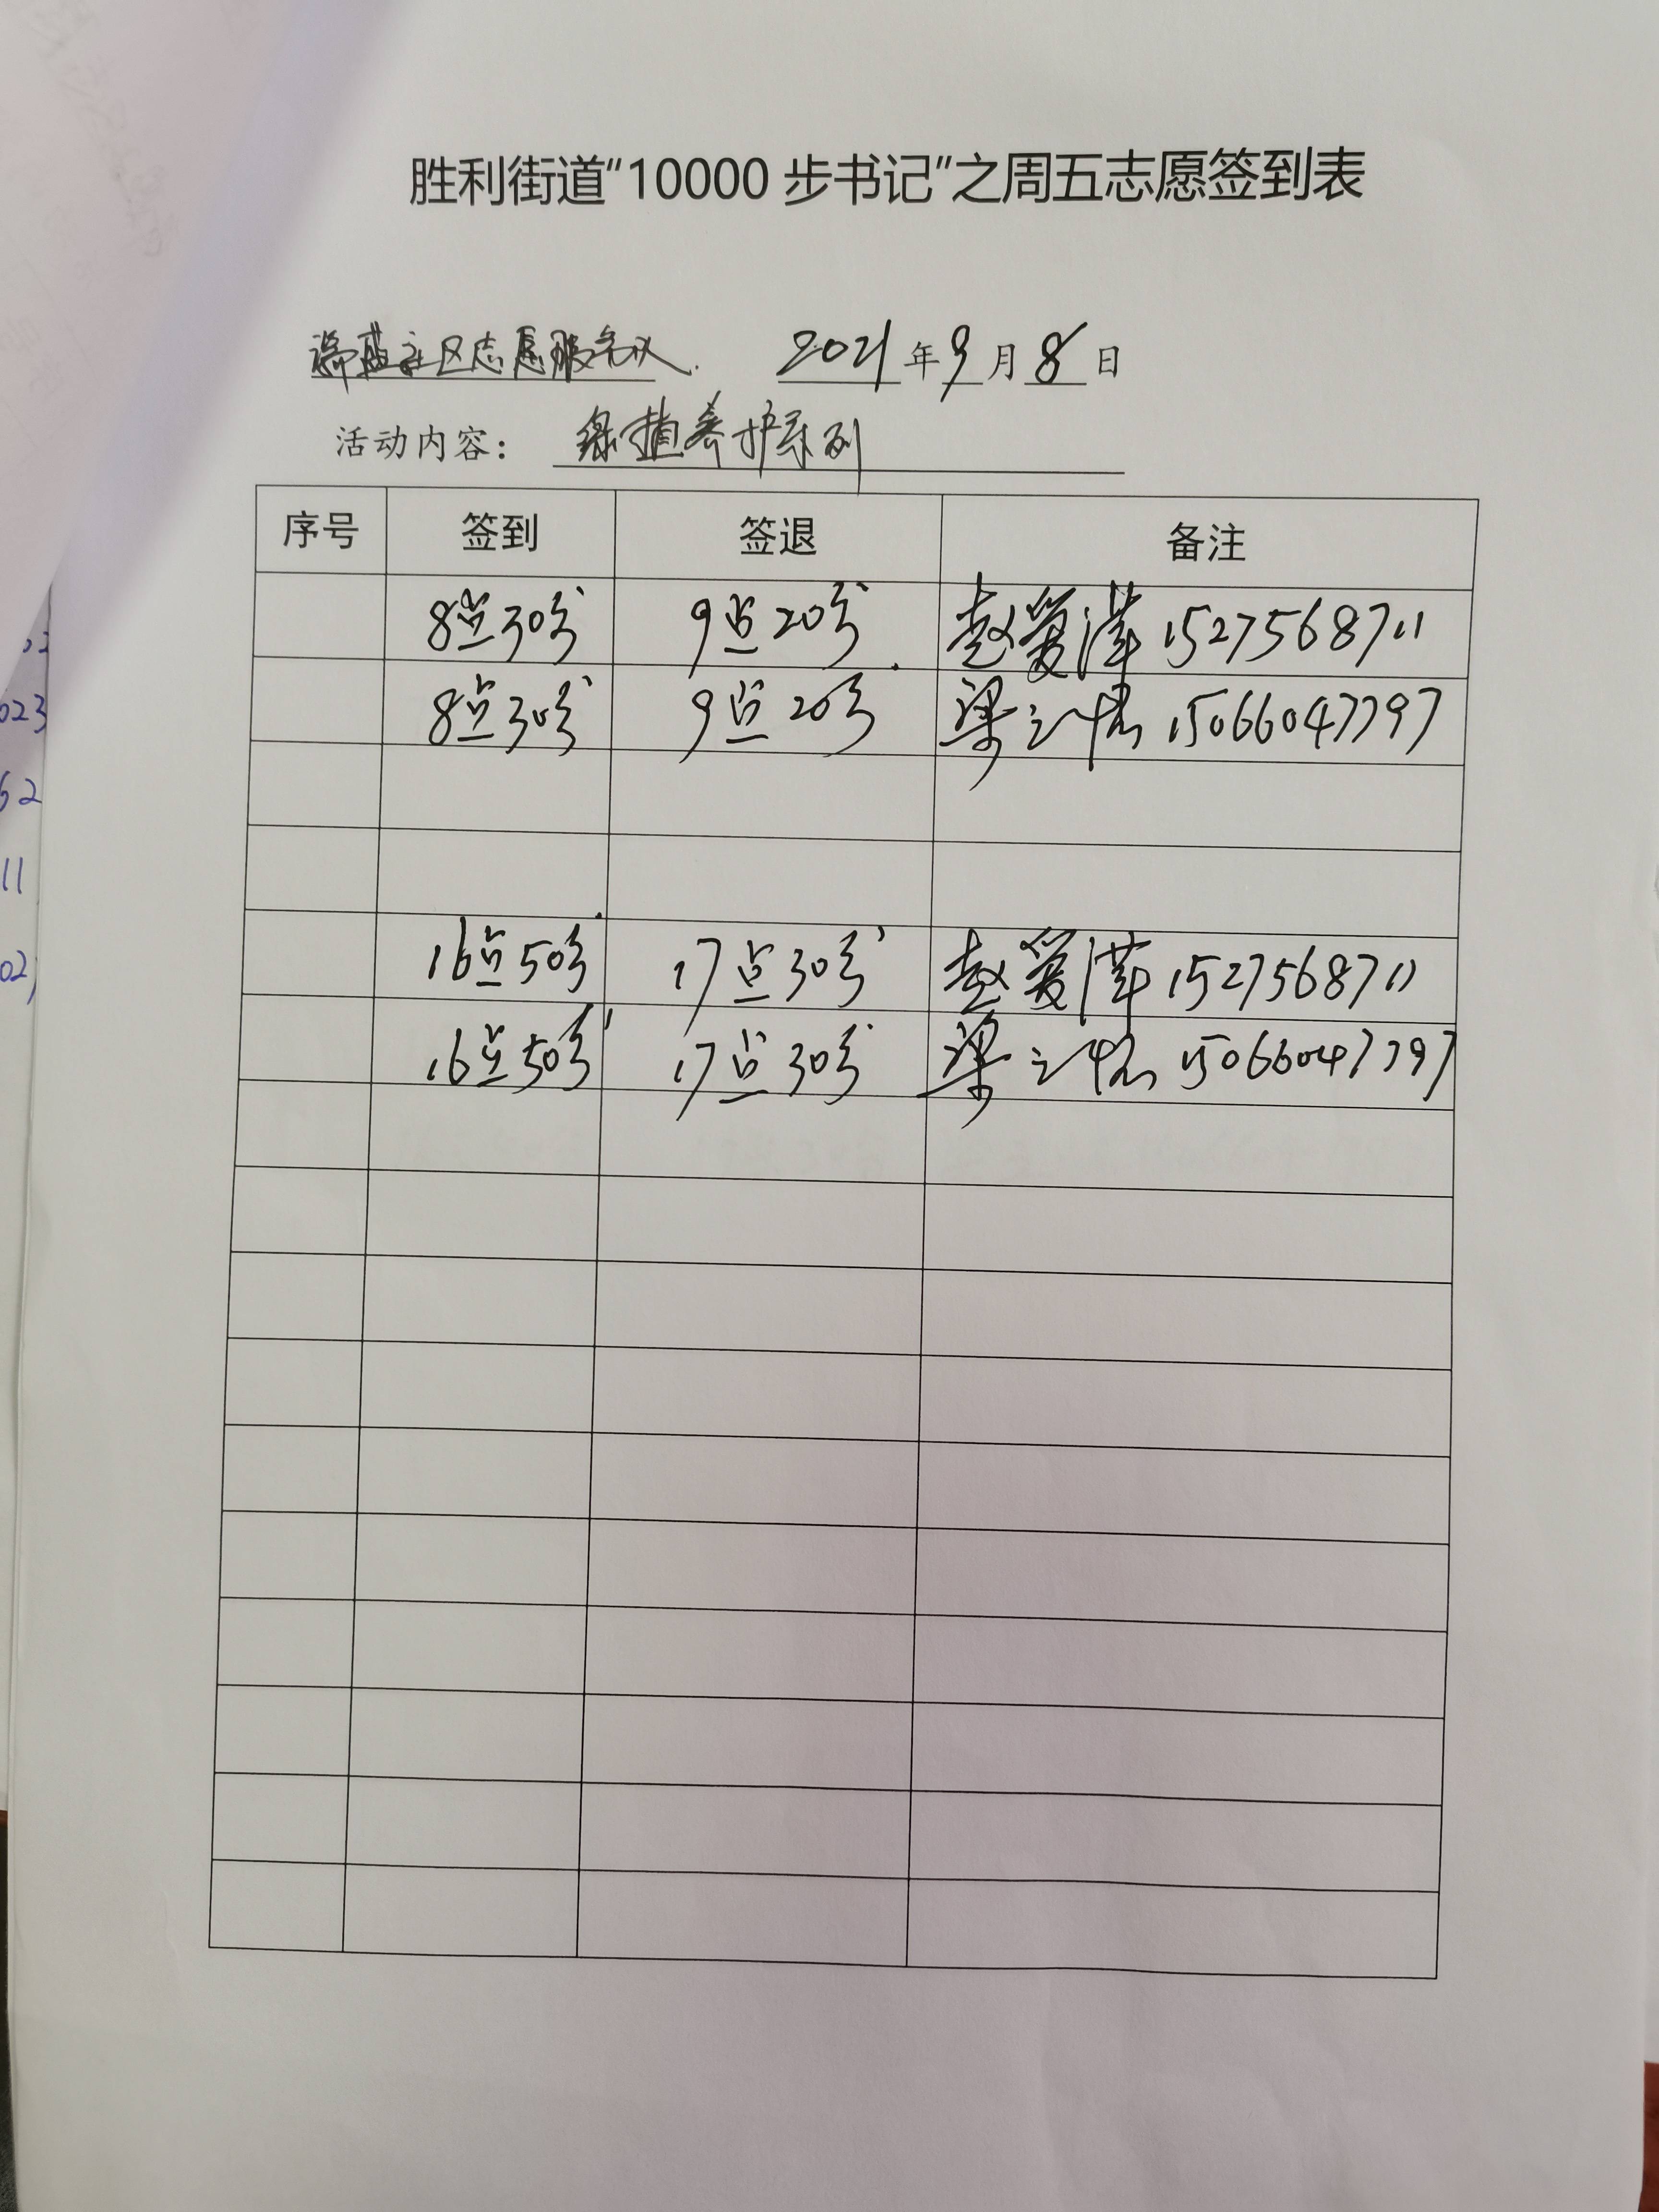 胜利街道“10000 步书记”之周五志愿签到表
社区志愿服务队 2021年9月8日
活动内容： 绿植养护系列
序号 签到 签退 备注
8点30分 9点20分 赵爱萍 1527568711
8点30分 9点20分 梁 15066047797
16点50分 17点30分 赵爱萍 1527568711
16点50分 17点30分 梁 15066047797
023
62
11
02